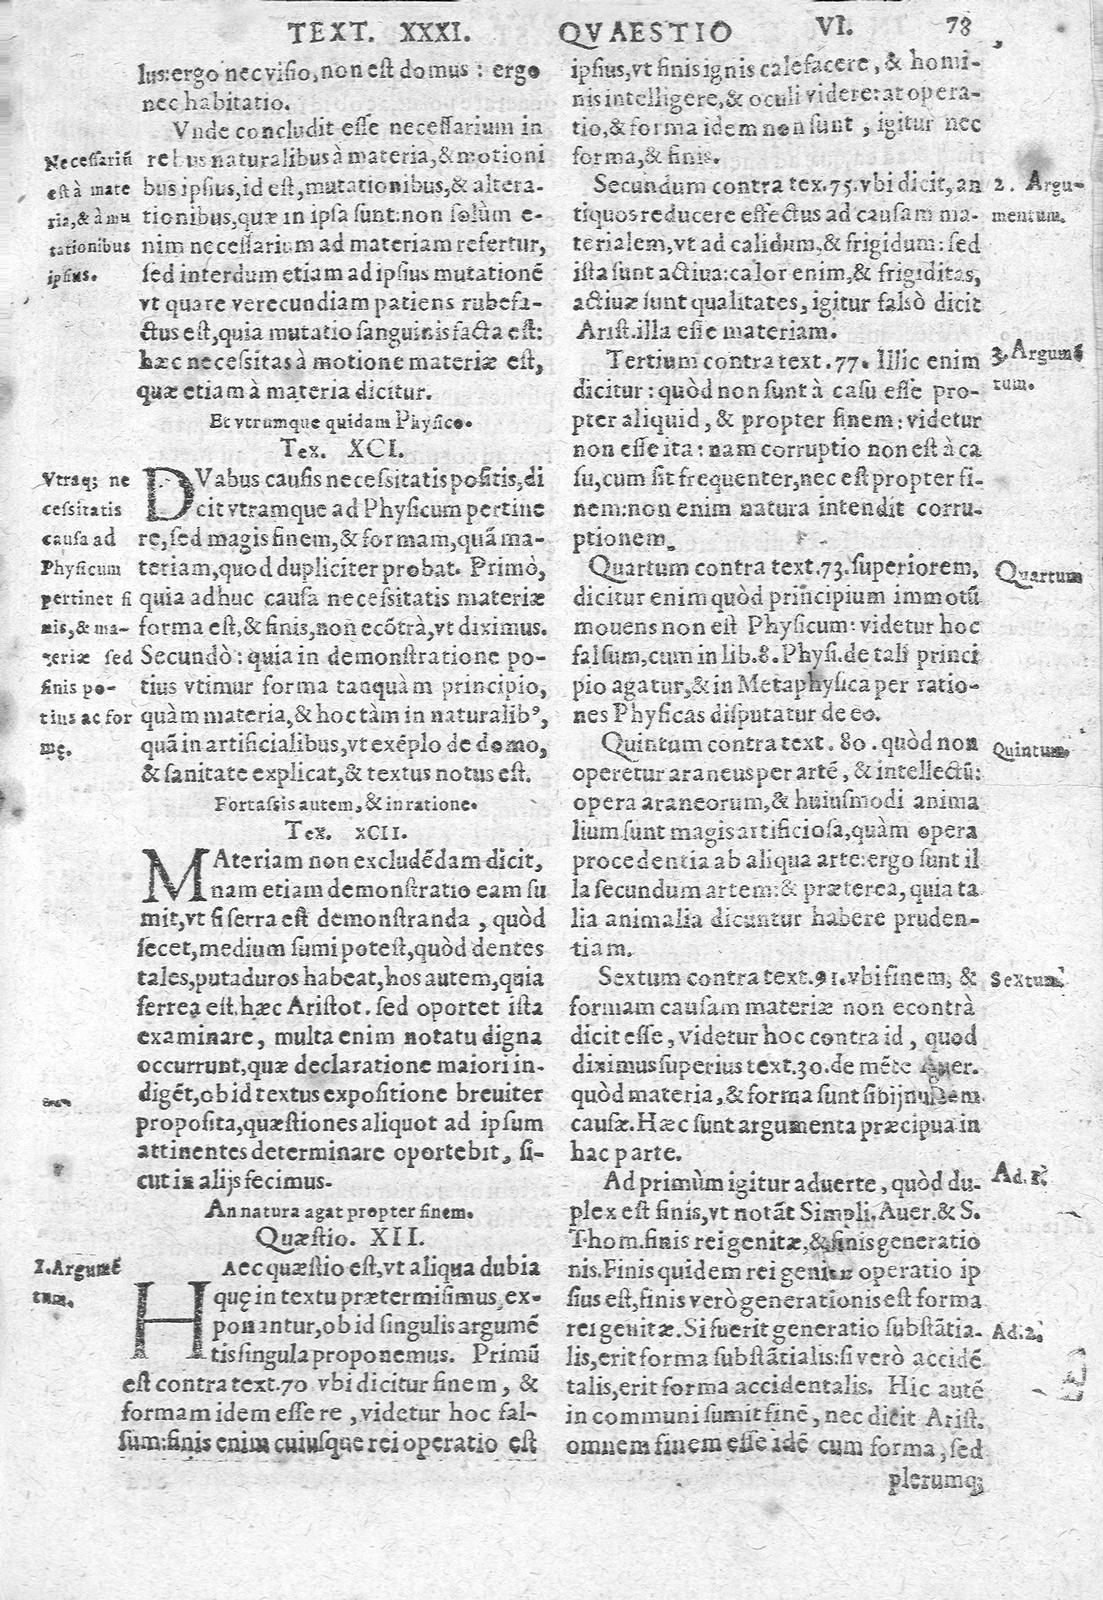 TEXT. XXXI. QVAESTIO VI. 73
lus: ergo nec visio, non est domus : ergo
nec habitatio.
Vnde concludit esse necessarium in
rebus naturalibus à materia, & motioni
bus ipsius, id est, mutationibus, & altera-
tionibus, quæ in ipsa sunt: non solùm e-
nim necessarium ad materiam refertur,
sed interdum etiam ad ipsius mutationẽ
vt quare verecundiam patiens rubefa-
ctus est, quia mutatio sanguinis facta est:
hæc necessitas à motione materiæ est,
quæ etiam à materia dicitur.
Necessariũ
est à mate
ria, & à mu
tationibus
ipsius.
Et vtrumque quidam Physico.
Tex. XCI.
DVabus causis necessitatis positis, di
cit vtramque ad Physicum pertine
re, sed magis finem, & formam, quã ma-
teriam, quod dupliciter probat. Primò,
quia adhuc causa necessitatis materiæ
forma est, & finis, non ecõtrà, vt diximus.
Secundò: quia in demonstratione po-
tius vtimur forma tanquàm principio,
quàm materia, & hoc tàm in naturalib⁹,
quã in artificialibus, vt exẽplo de domo,
& sanitate explicat, & textus notus est.
Vtraq; ne
cessitatis
causa ad
Physicum
pertinet fi
nis, & ma-
teriæ sed
finis po-
tius ac for
mę.
Fortassis autem, & in ratione.
Tex. XCII.
MAteriam non excludẽdam dicit,
nam etiam demonstratio eam su
mit, vt si serra est demonstranda , quòd
secet, medium sumi potest, quòd dentes
tales, puta duros habeat, hos autem, quia
ferrea est. hæc Aristot. sed oportet ista
examinare, multa enim notatu digna
occurrunt, quæ declaratione maiori in-
digẽt, ob id textus expositione breuiter
proposita, quæstiones aliquot ad ipsum
attinentes determinare oportebit, si-
cut in alijs fecimus.
An natura agat propter finem.
Quæstio. XII.
HAec quæstio est, vt aliqua dubia
quę in textu prætermisimus, ex-
ponantur, ob id singulis argumẽ
tis singula proponemus. Primũ
est contra text. 70 vbi dicitur finem , &
formam idem esse re , videtur hoc fal-
sum: finis enim cuiusque rei operatio est
1. Argumẽ
tum.
ipsius, vt finis ignis calefacere, & homi-
nis intelligere, & oculi videre: at opera-
tio, & forma idem non sunt , igitur nec
forma, & finis.
Secundum contra tex. 75. vbi dicit, an
tiquos reducere effectus ad causam ma-
terialem, vt ad calidum, & frigidum: sed
ista sunt actiua: calor enim, & frigiditas,
actiuæ sunt qualitates, igitur falsò dicit
Arist. illa esse materiam.
2. Argu-
mentum.
Tertium contra text. 77. Illic enim
dicitur: quòd non sunt à casu esse pro-
pter aliquid, & propter finem: videtur
non esse ita: nam corruptio non est à ca
su, cum sit frequenter, nec est propter fi-
nem: non enim natura intendit corru-
ptionem.
3. Argumẽ
tum.
Quartum contra text. 73. superiorem,
dicitur enim quòd principium immotũ
mouens non est Physicum: videtur hoc
falsum, cum in lib. 8. Physi. de tali princi
pio agatur, & in Metaphysica per ratio-
nes Physicas disputatur de eo.
Quartum
Quintum contra text. 80. quòd non
operetur araneus per artẽ, & intellectũ:
opera araneorum, & huiusmodi anima
lium sunt magis artificiosa, quàm opera
procedentia ab aliqua arte: ergo sunt il
la secundum artem: & præterea, quia ta
lia animalia dicuntur habere pruden-
tiam.
Quintum.
Sextum contra text. 91. vbi finem, &
formam causam materiæ non econtrà
dicit esse, videtur hoc contra id, quod
diximus superius text. 30. de mẽte Auer.
quòd materia, & forma sunt sibijnuicem
causæ. Hæc sunt argumenta præcipua in
hac parte.
Sextum.
Ad primùm igitur aduerte, quòd du-
plex est finis, vt notãt Simpli. Auer. & S.
Thom. finis rei genitæ, & finis generatio
nis. Finis quidem rei genitæ operatio ip
sius est, finis verò generationis est forma
rei genitæ. Si fuerit generatio substãtia-
lis, erit forma substãtialis: si verò accidẽ
talis, erit forma accidentalis. Hic autẽ
in communi sumit finẽ, nec dicit Arist.
omnem finem esse idẽ cum forma, sed
plerumq;
Ad. 1.
Ad. 2.